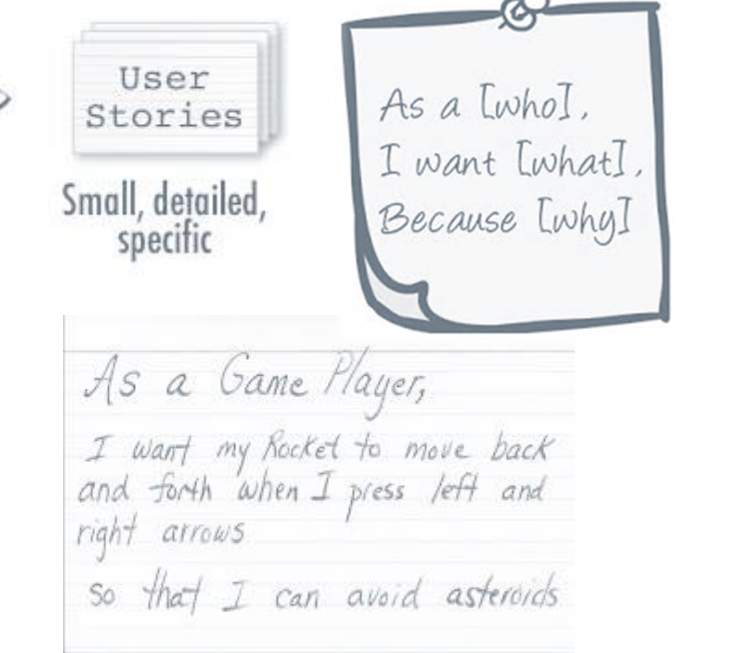 User
Stories
Small, detailed,
specific
As a [who],
I want [what],
Because [why]
As a Game Player,
I want my Rocket to move back
and forth when I press left and
right arrows
so that I can avoid asteroids